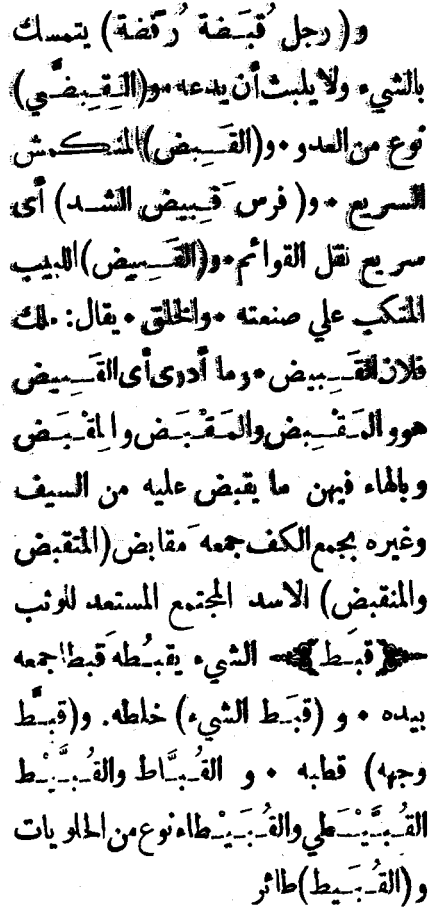 و ( رجل قُبَضة رُفَضة ) يتمسك
بالشيء ولا يلبث أن يدعه • و ( القِبِضَّي )
نوع من العدو • و ( القَبِض ) المنكمش
السريع • و ( فرس قَبِيض الشد ) أى
سريع نقل القوائم • و ( القَبِيض ) اللبيب
المنكب علي صنعته • والخلق • يقال : ملك
فلان القَبِيض • وما أدرى أى القَبِيض
هو والمَقْبِض والمَقْبَض والمِقْبَض
وبالهاء فيهن ما يقبض عليه من السيف
وغيره بجمع الكف جمعه مَقابض ( المتقبض
والمنقبض ) الاسد المجتمع المستعد للوثب
﴿ قبَط ﴾ الشيء يقبُطه قَبطا جمعه
بيده • و ( قبَط الشيء ) خلطه . و ( قبَّط
وجهه ) قطبه • و القُبَّاط والقُبَّيْط
القُبَّيْطي والقُبَيْطاء نوع من الحلويات
و ( القُبَيط ) طائر